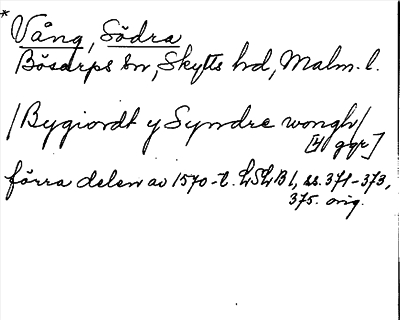 * Vång, Södra
Bösarps sn, Skytts hd, Malm. l.
/Bygiordt y Syndre wongh/
[4 ggr]
förra delen av 1570-t. LSLB 1, ss. 371-373,
375. orig.